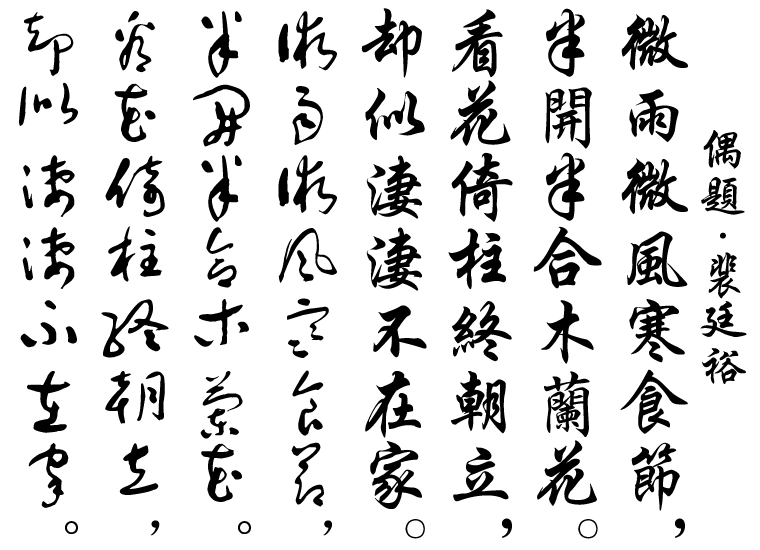 偶題·裴廷裕
微雨微風寒食節，
半開半合木蘭花。
看花倚柱終朝立，
却似淒淒不在家。
微雨微風寒食節，
半開半合木蘭花。
看花倚柱終朝立，
却似淒淒不在家。